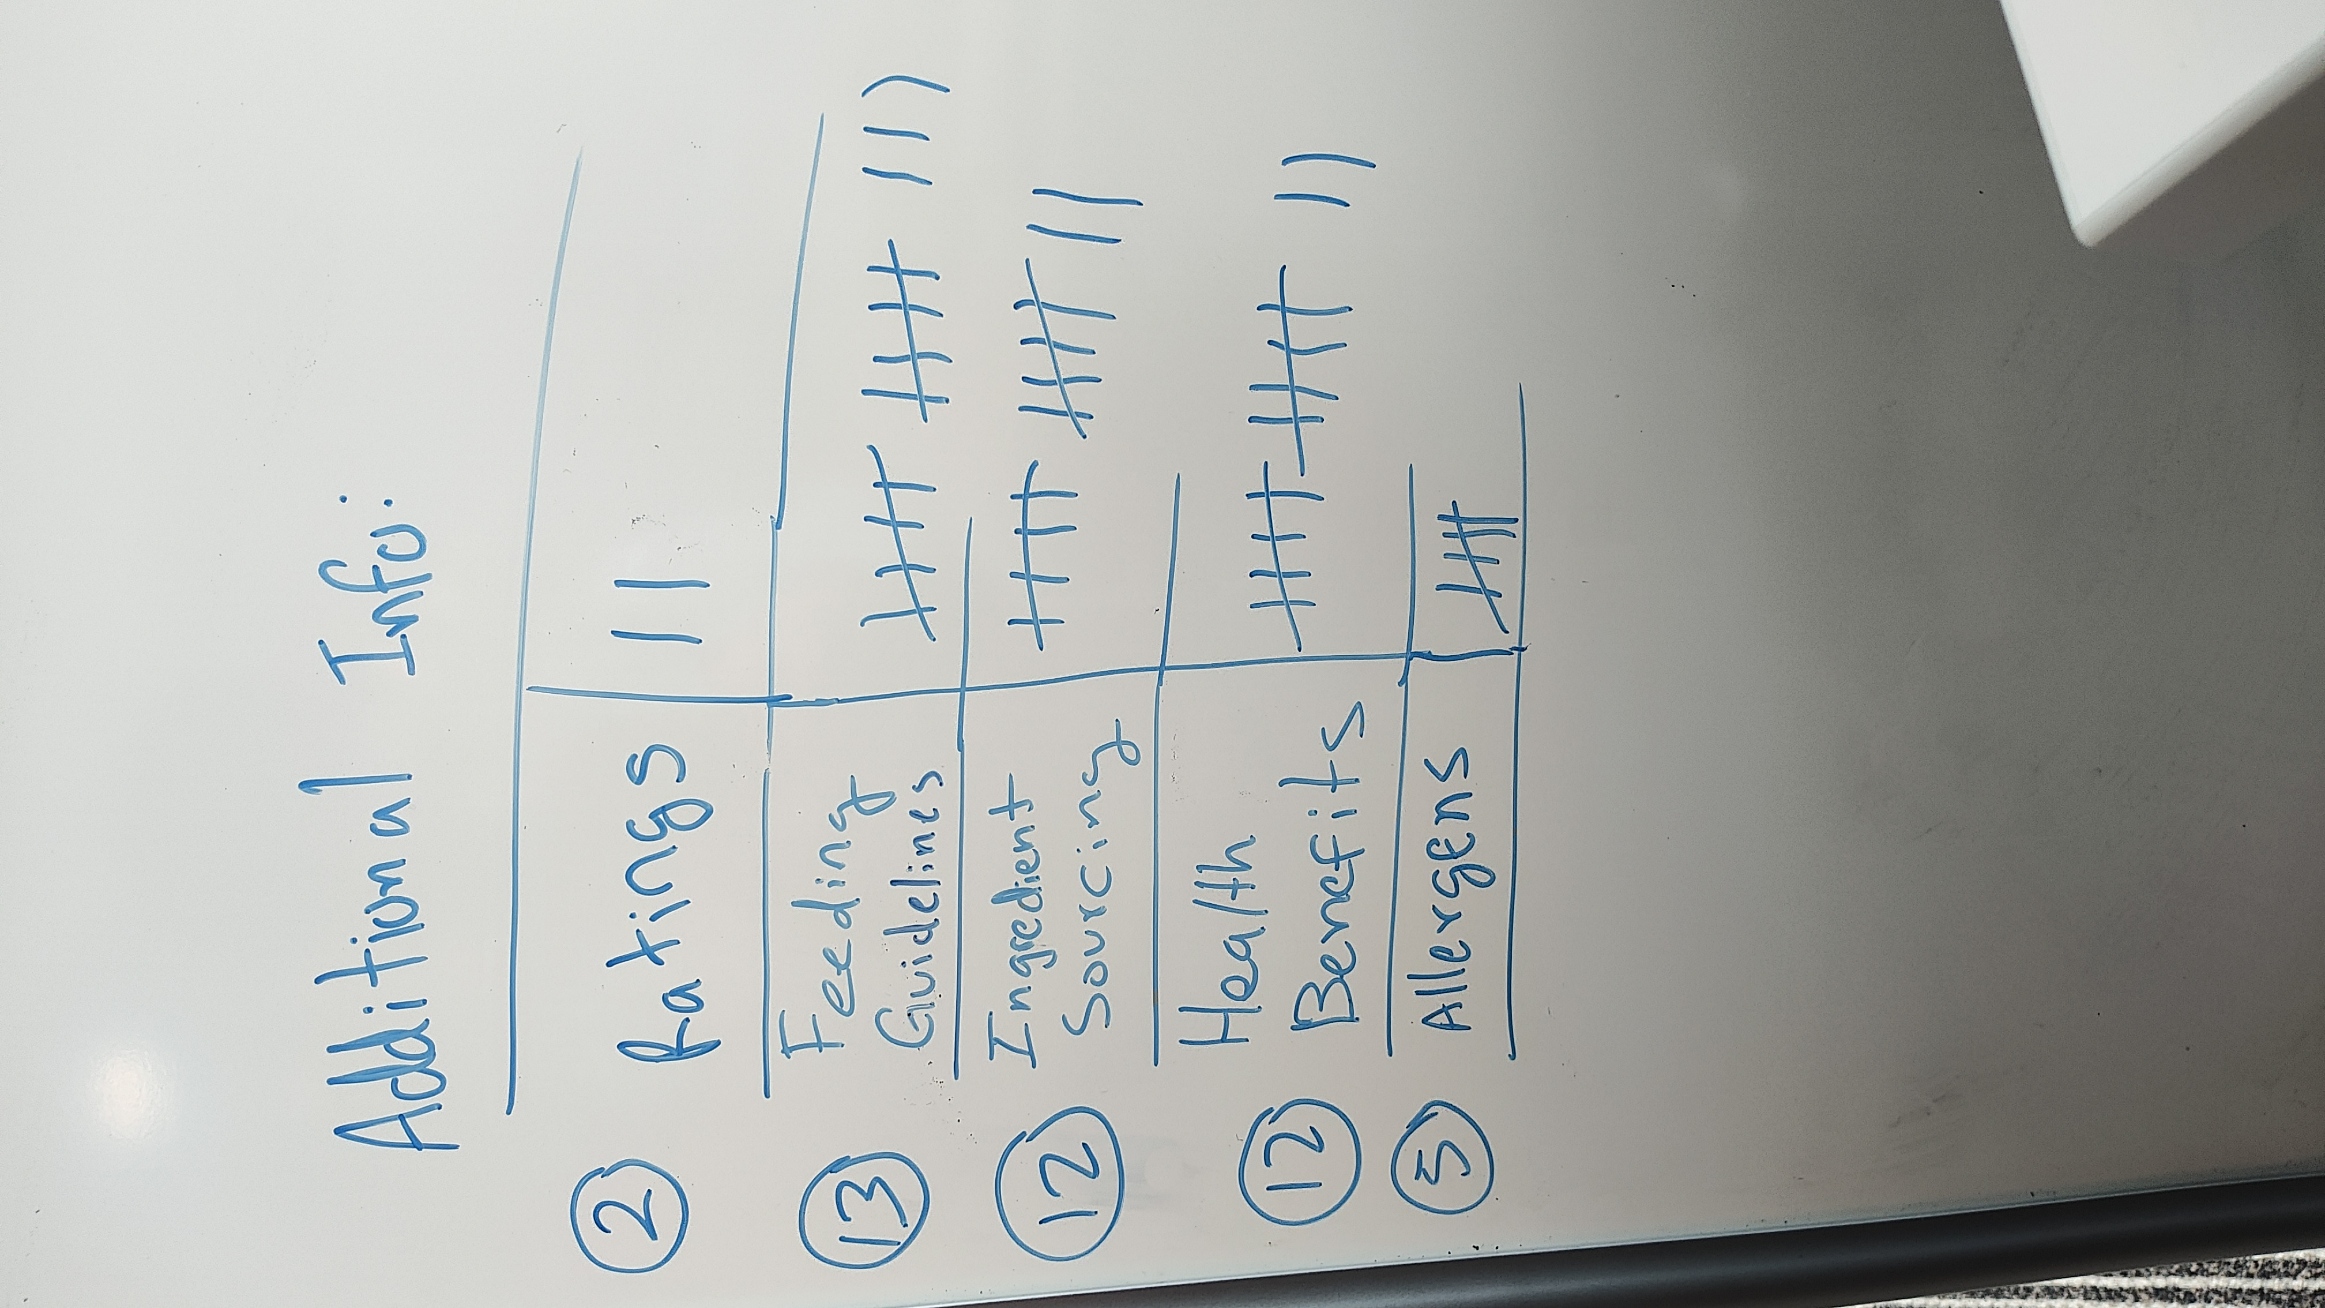 Additional Info:
2 Ratings ||
13 Feeding
Guidelines 卌 卌 |||
12 Ingredient
Sourcing 卌 卌 ||
12 Health
Benefits 卌 卌 ||
5 Allergens 卌